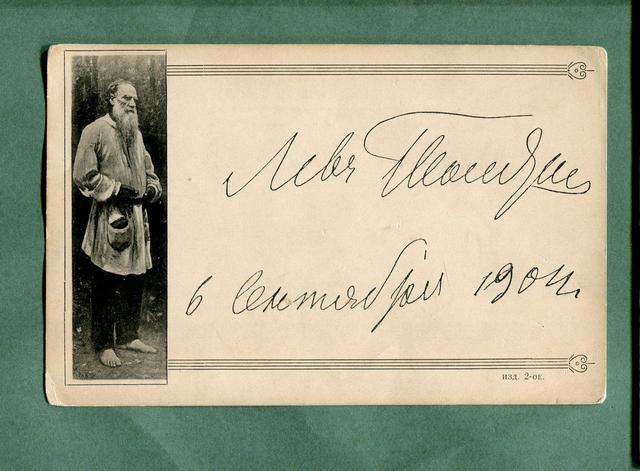 Левъ Толстой
6 Сентября 1904
изд. 2-ое.